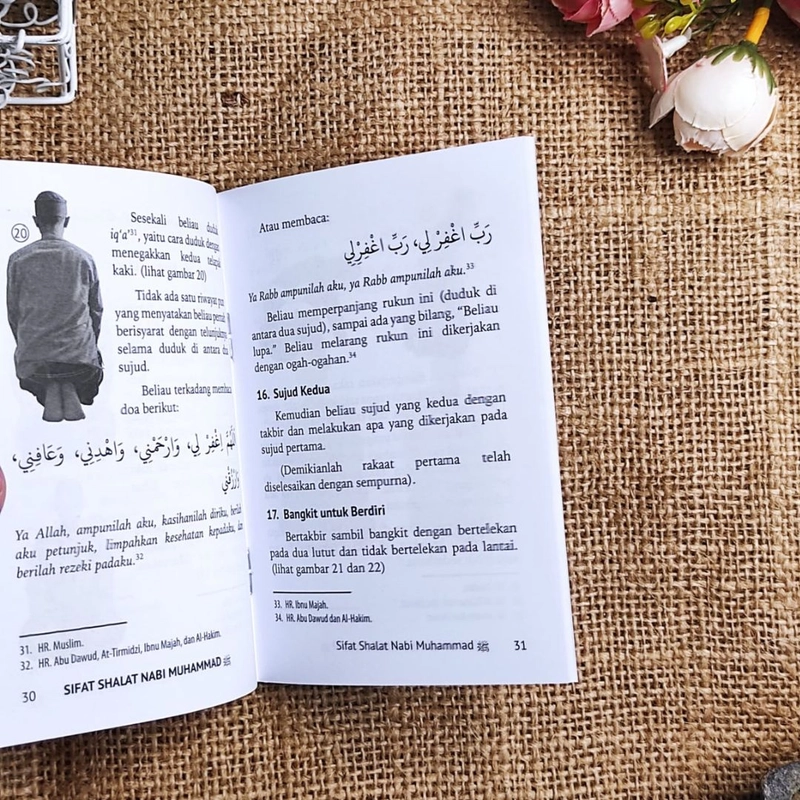 20
Sesekali beliau duduk
iq'a'31, yaitu cara duduk dengan
menegakkan kedua telapak
kaki. (lihat gambar 20)
Tidak ada satu riwayat pun
yang menyatakan beliau pernah
berisyarat dengan telunjuknya
selama duduk di antara dua
sujud.
Beliau terkadang membaca
doa berikut:
اللَّهُمَّ اغْفِرْ لِي، وَارْحَمْنِي، وَاهْدِنِي، وَعَافِنِي،
وَارْزُقْنِي
Ya Allah, ampunilah aku, kasihanilah diriku,
aku petunjuk, limpahkan kesehatan kepadaku,
berilah rezeki padaku.32
31. HR. Muslim.
32. HR. Abu Dawud, At-Tirmidzi, Ibnu Majah, dan Al-Hakim.
30 SIFAT SHALAT NABI MUHAMMAD ﷺ
Atau membaca:
رَبِّ اغْفِرْ لِي، رَبِّ اغْفِرْلِي
Ya Rabb ampunilah aku, ya Rabb ampunilah aku.33
Beliau memperpanjang rukun ini (duduk di
antara dua sujud), sampai ada yang bilang, “Beliau
lupa.” Beliau melarang rukun ini dikerjakan
dengan ogah-ogahan.34
16. Sujud Kedua
Kemudian beliau sujud yang kedua dengan
takbir dan melakukan apa yang dikerjakan pada
sujud pertama.
(Demikianlah rakaat pertama telah
diselesaikan dengan sempurna).
17. Bangkit untuk Berdiri
Bertakbir sambil bangkit dengan bertelekan
pada dua lutut dan tidak bertelekan pada lantai.
(lihat gambar 21 dan 22)
33. HR. Ibnu Majah.
34. HR. Abu Dawud dan Al-Hakim.
Sifat Shalat Nabi Muhammad ﷺ 31